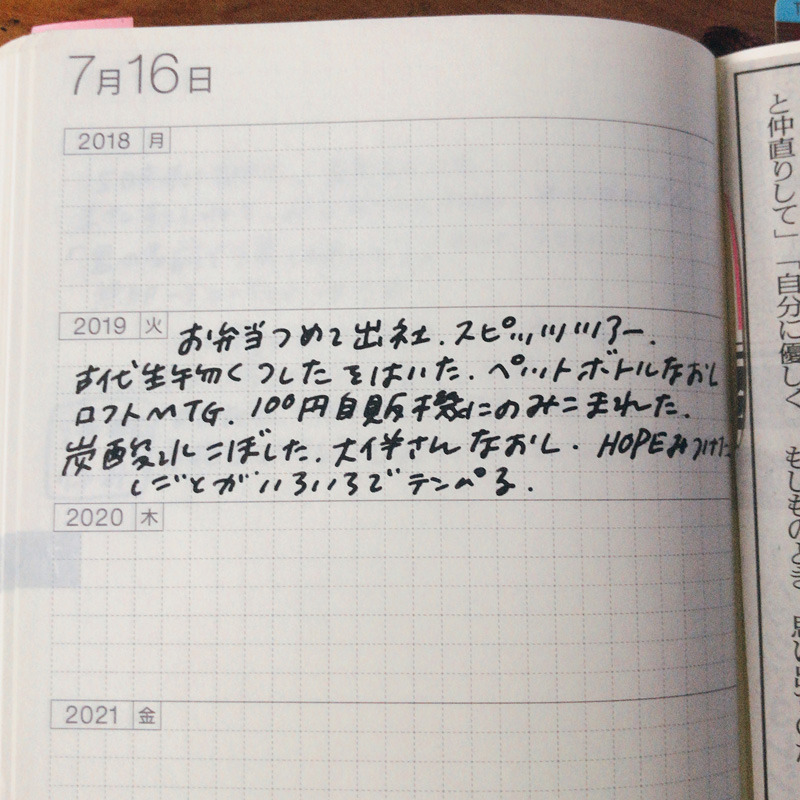 7月16日
2018 月
2019 火 お弁当つめて出社. スピッツツアー.
古代生物くつしたをはいた. ペットボトルなおし
ロフトMTG. 100円自販機にのみこまれた.
炭酸水こぼした. 大伴さんなおし. HOPEみつけた
しごとがいろいろでテンパる.
2020 木
2021 金
と仲直りして」「自分に優しく もしものとき 思い出